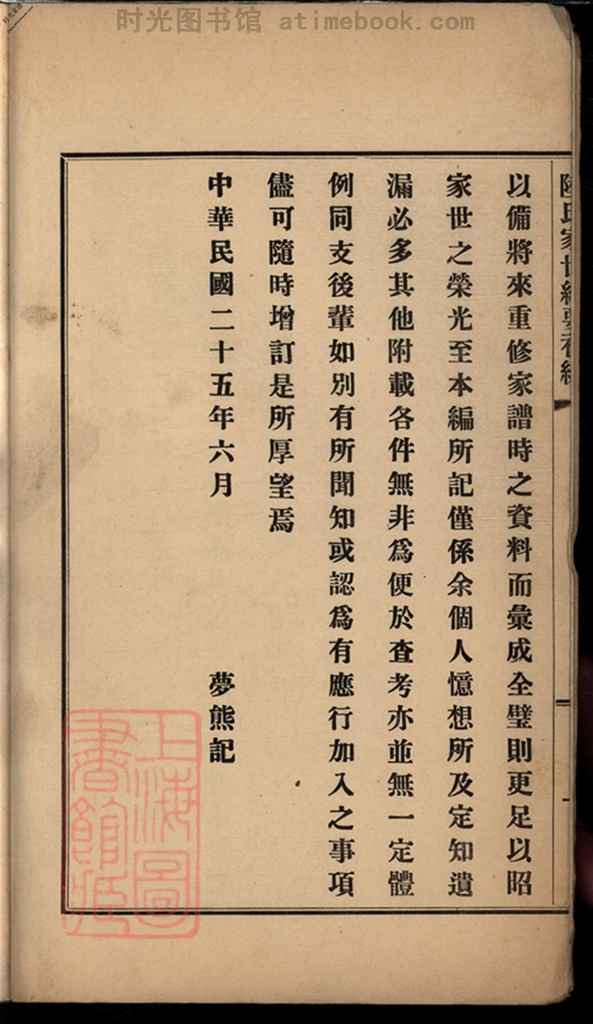 时光图书馆 atimebook.com
以備將來重修家譜時之資料而彙成全璧則更足以昭
家世之榮光至本編所記僅係余個人憶想所及定知遺
漏必多其他附載各件無非爲便於查考亦並無一定體
例同支後輩如別有所聞知或認爲有應行加入之事項
儘可隨時增訂是所厚望焉
中華民國二十五年六月 夢熊記
上海圖
書館藏